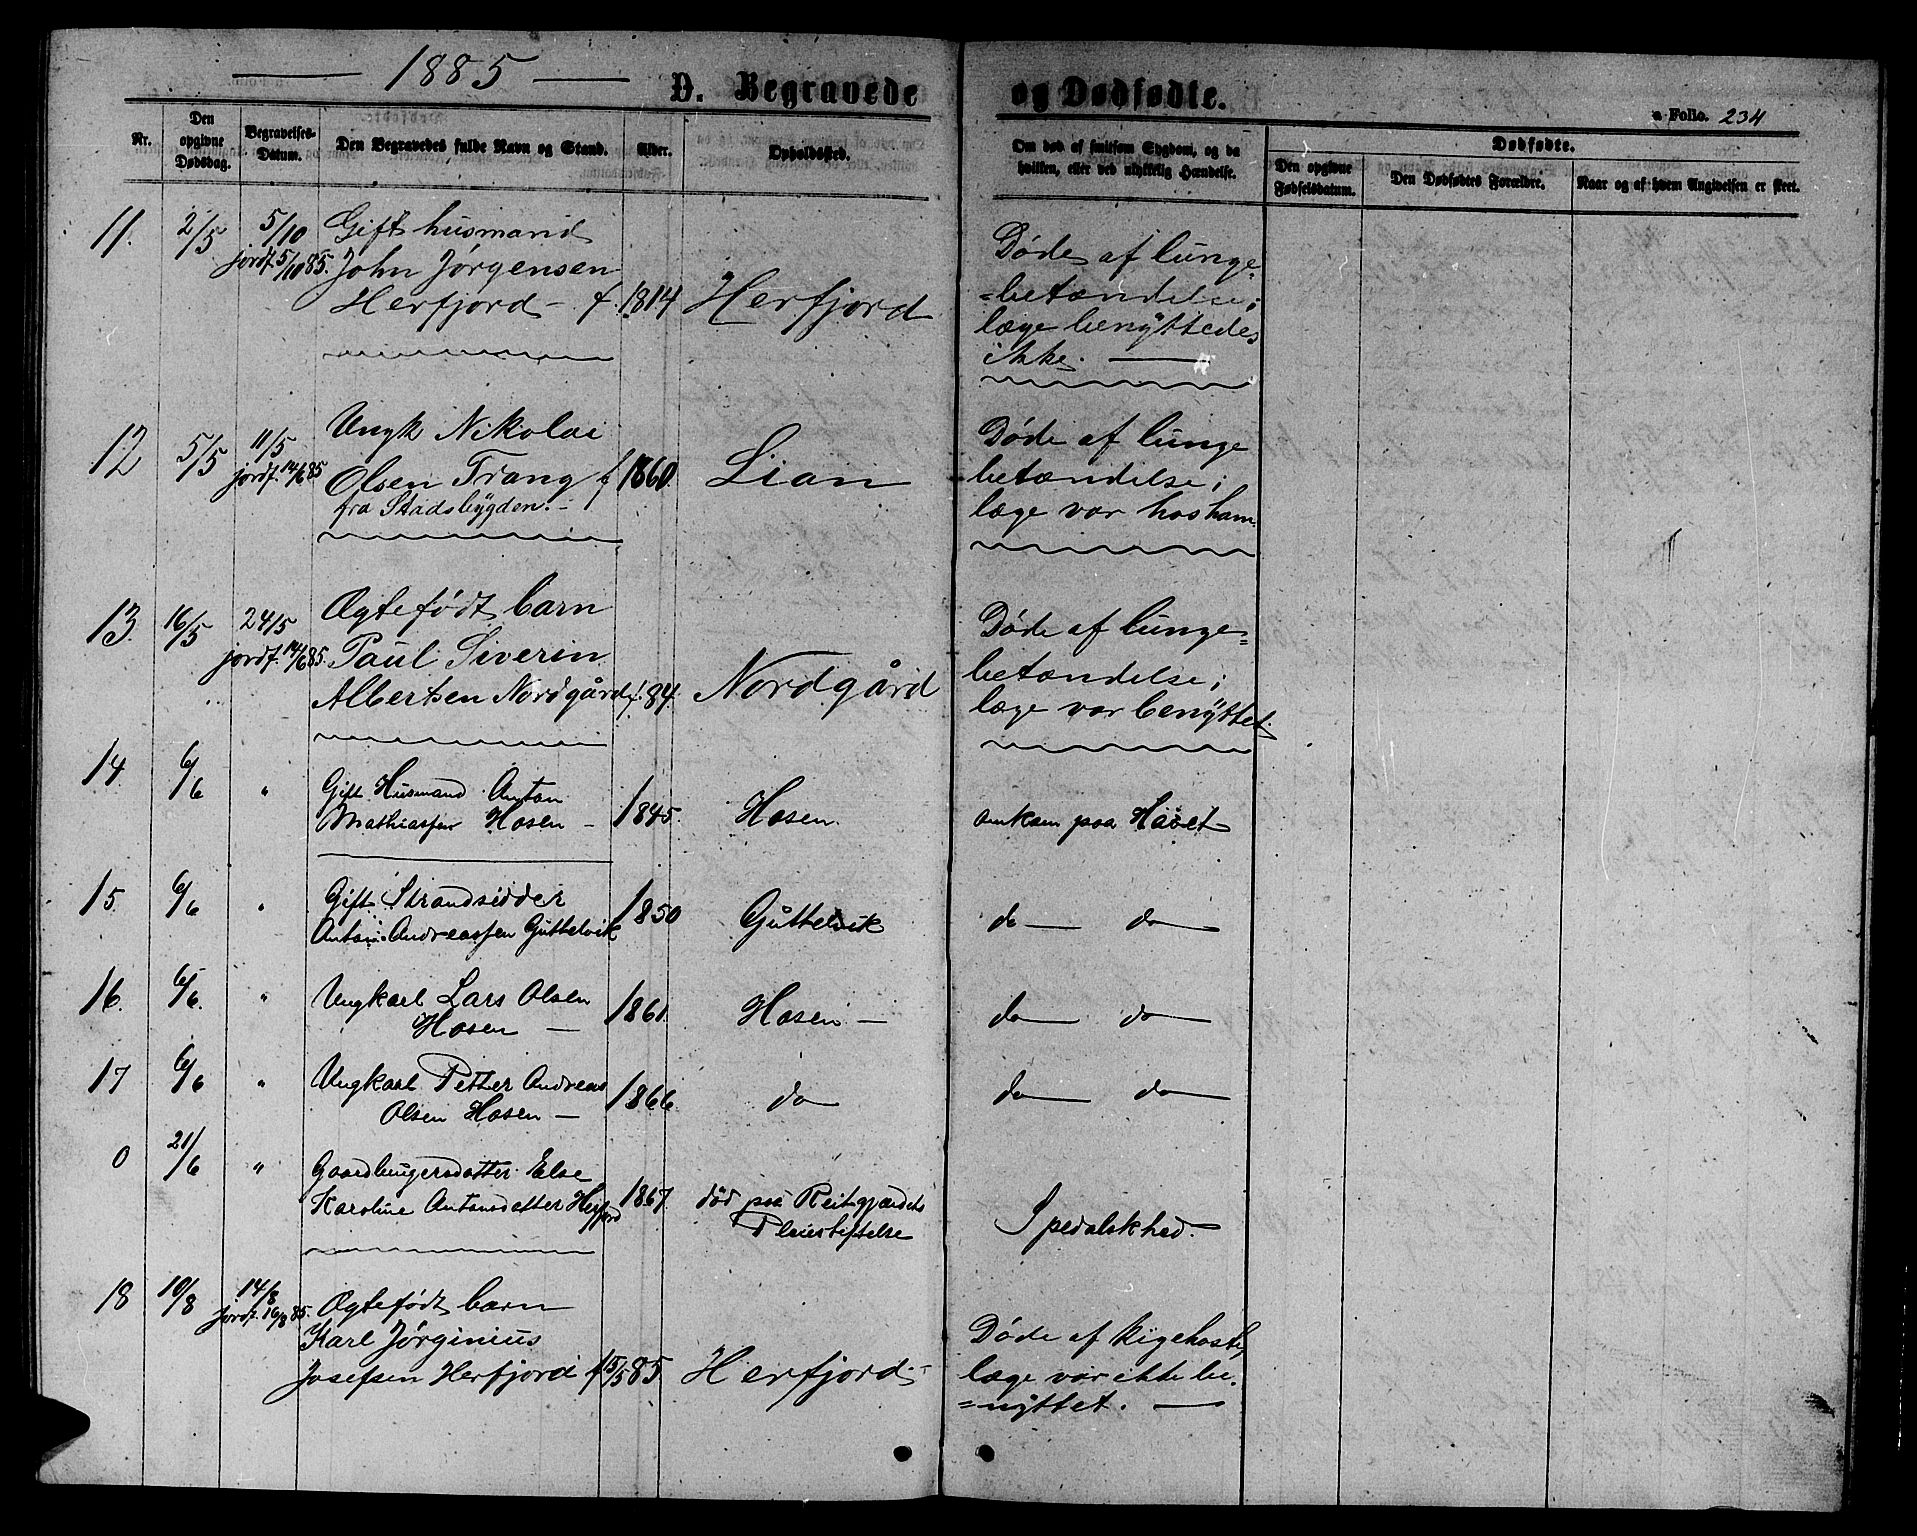 1885
D. Begravede og Dødfødte.
Folio. 234
Nr.
Den opgivne Dødsdag.
Begravelses-Datum.
Den Begravedes fulde Navn og Stand.
Alder.
Opholdssted.
Om død af smitsom Sygdom, og da hvilken, eller ved ulykkelig Hændelse.
Dødfødte.
Den opgivne Fødselsdatum.
Den Dødfødtes Forældre.
Naar og af hvem Angivelsen er skeet.
11. 2/5 5/10 Gift husmand Døde af lunge-
jordf. 5/10 85. John Jørgensen =betændelse;
Herfjord – f. 1814 Herfjord læge benyttedes
ikke.
12 5/5 11/5 Ungk Nikolai Døde af lunge
jordf. 14/6 85 Olsen Trang f 1860. Lian betændelse;
fra Stadsbygden. – læge var hos ham.
13. 16/5 24/5 Ægtefødt barn Døde af lunge=
jordf. 14/6 85. Paul Siverin betændelse;
Albertsen Nordgård f. 84. Nordgård læge var benyttet.
14. 6/6 " Gift Husmand Anton
Mathiassen Hosen – 1845. Hosen. omkom paa Havet
15. 6/6 " Gift Strandsidder 1850 Guttelvik do do
Anton Andreassen Guttelvik
16. 6/6. " Ungkarl Lars Olsen 1861. Hosen – do do
Hosen –
17 6/6 " Ungkarl Petter Andreas 1866. do do do
Olsen Hosen –
0 21/6 " Gaardbrugersdatter Else
Karoline Antonsdatter Herfjord 1867. død paa Reitgjærdets Spedalskhed.
Pleiestiftelse
18 10/8 14/8 Ægtefødt barn
jordf. 16/8 85. Karl Jørginius Døde af kigehoste,
Josefsen Herfjord f 15/5 85 Herfjord – læge var ikke be-
=nyttet.